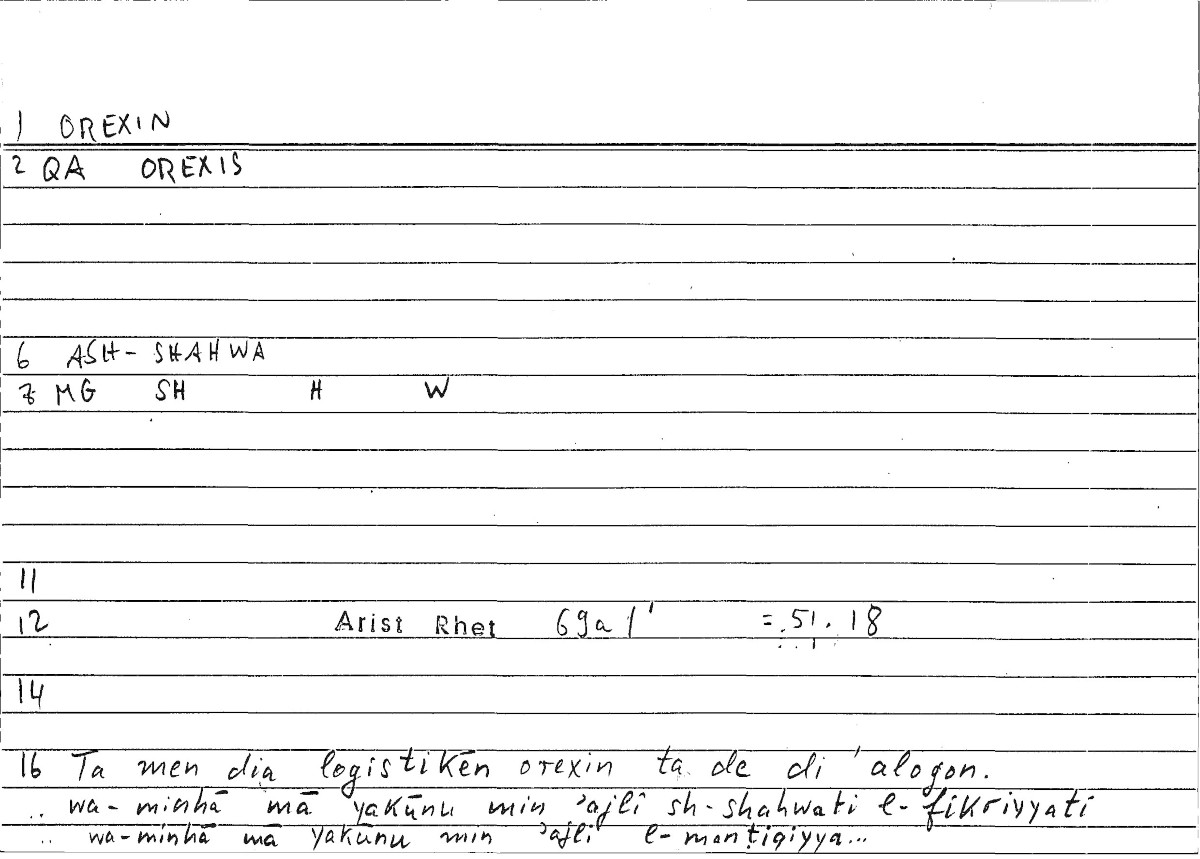 1 OREXIN
2 QA OREXIS
6 ASH- SHAHWA
7 MG SH H W
11
12 Arist Rhet 69a1' = 51.18
14
16 Ta men dia logistikēn orexin ta de di 'alogon.
.. wa-minhā mā yakūnu min ʾajli sh-shahwati l-fikriyyati
.. wa-minhā mā yakūnu min ʾajli l-manṭiqiyya...